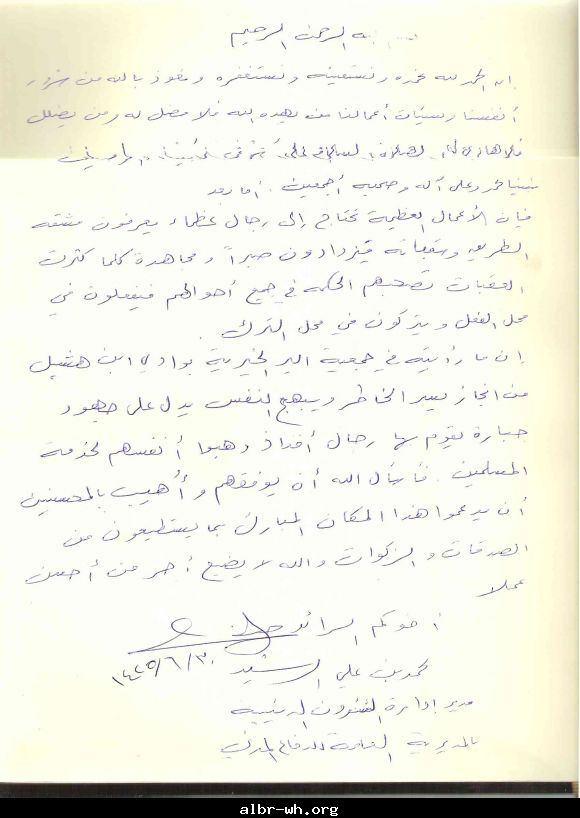 بسم الله الرحمن الرحيم
إن الحمد لله نحمده ونستعينه ونستغفره ونعوذ بالله من شرور
أنفسنا وسيئات أعمالنا من يهده الله فلا مضل له ومن يضلل
فلا هادي له والصلاة والسلام على أشرف الأنبياء والمرسلين
نبينا محمد وعلى آله وصحبه أجمعين . أما بعد
فإن الأعمال العظيمة تحتاج إلى رجال عظماء يعرفون مشقة
الطريق وعقباته فيزدادون صبراً ومجاهدة كلما كثرت
العقبات تصحبهم الحكمة في جميع أحوالهم فيفعلون في
محل الفعل ويتركون في محل الترك .
إن ما رأيته في جمعية البر الخيرية بوادي ابن هشبل
من انجاز يسر الخاطر ويبهج النفس يدل على جهود
جبارة يقوم بها رجال أفذاذ وهبوا أنفسهم لخدمة
المسلمين . فأسأل الله أن يوفقهم وأهيب بالمحسنين
أن يدعموا هذا المكان المبارك بما يستطيعون من
الصدقات والزكوات والله لا يضيع أجر من أحسن
عملا
أخوكم الرائد
محمد بن علي الرشيد ١٤٢٥/٦/٣٠
مدير إدارة الشئون الدينية
بالمديرية العامة للدفاع المدني
albr-wh.org